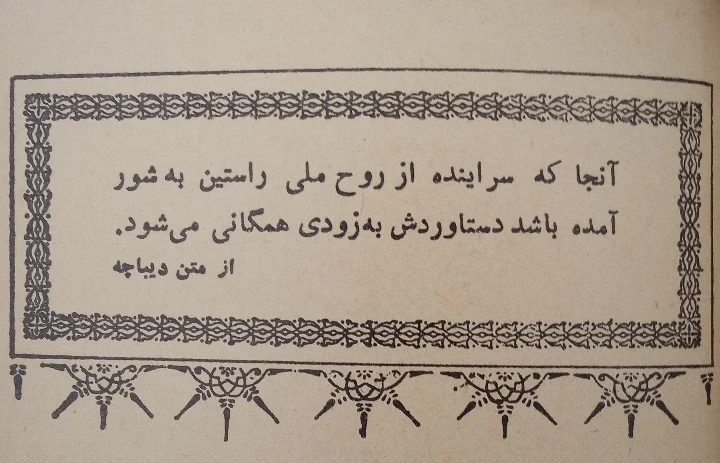 آنجا که سراینده از روح ملی راستین به‌شور
آمده باشد دستاوردش به‌زودی همگانی می‌شود.
از متن دیباچه